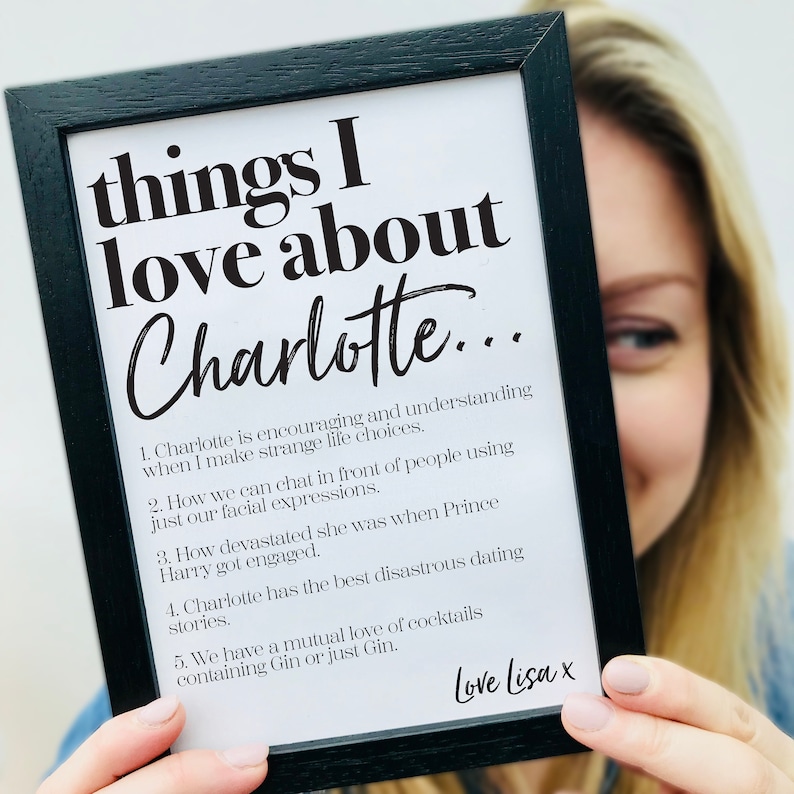 things I
love about
Charlotte...
1. Charlotte is encouraging and understanding
when I make strange life choices.
2. How we can chat in front of people using
just our facial expressions.
3. How devastated she was when Prince
Harry got engaged.
4. Charlotte has the best disastrous dating
stories.
5. We have a mutual love of cocktails
containing Gin or just Gin.
Love Lisa x